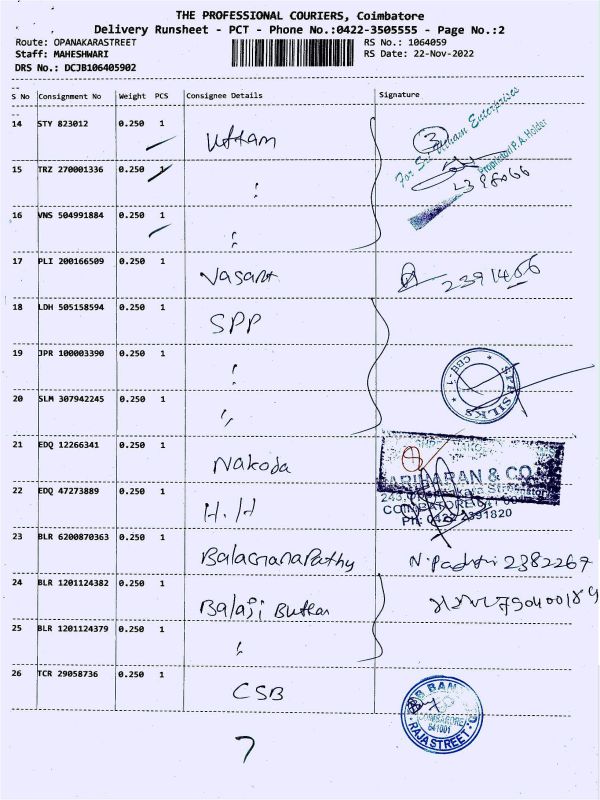 THE PROFESSIONAL COURIERS, Coimbatore
Delivery Runsheet - PCT - Phone No.:0422-3505555 - Page No.:2
Route: OPANAKARASTREET RS No.: 1064059
Staff: MAHESHWARI RS Date: 22-Nov-2022
DRS No.: DCJB106405902
S No Consignment No Weight PCS Consignee Details Signature
14 STY 823012 0.250 1 Uttam 3
For Sri Uttam Enterprises
Proprietor/P.A. Holder
15 TRZ 270001336 0.250 1 "
16 VNS 504991884 0.250 1 "
17 PLI 200166509 0.250 1 Vasant 2391456
18 LDH 505158594 0.250 1 SPP
19 JPR 100003390 0.250 1 "
SPP SILKS * CBE-1 *
20 SLM 307942245 0.250 1 "
21 EDQ 12266341 0.250 1 Nakoda
ARIHARAN & CO
22 EDQ 47273889 0.250 1 H.H
COIMBATORE
Ph: 0422 2391820
23 BLR 6200870363 0.250 1 BalaGanaPathy 2382267
24 BLR 1201124382 0.250 1 Balaji Button
25 BLR 1201124379 0.250 1 "
26 TCR 29058736 0.250 1 CSB
COIMBATORE
641001
RAJA STREET
7